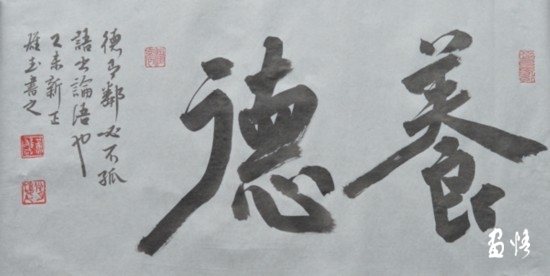 養德
德有鄰必不孤
語出論語也
乙未新正
書之